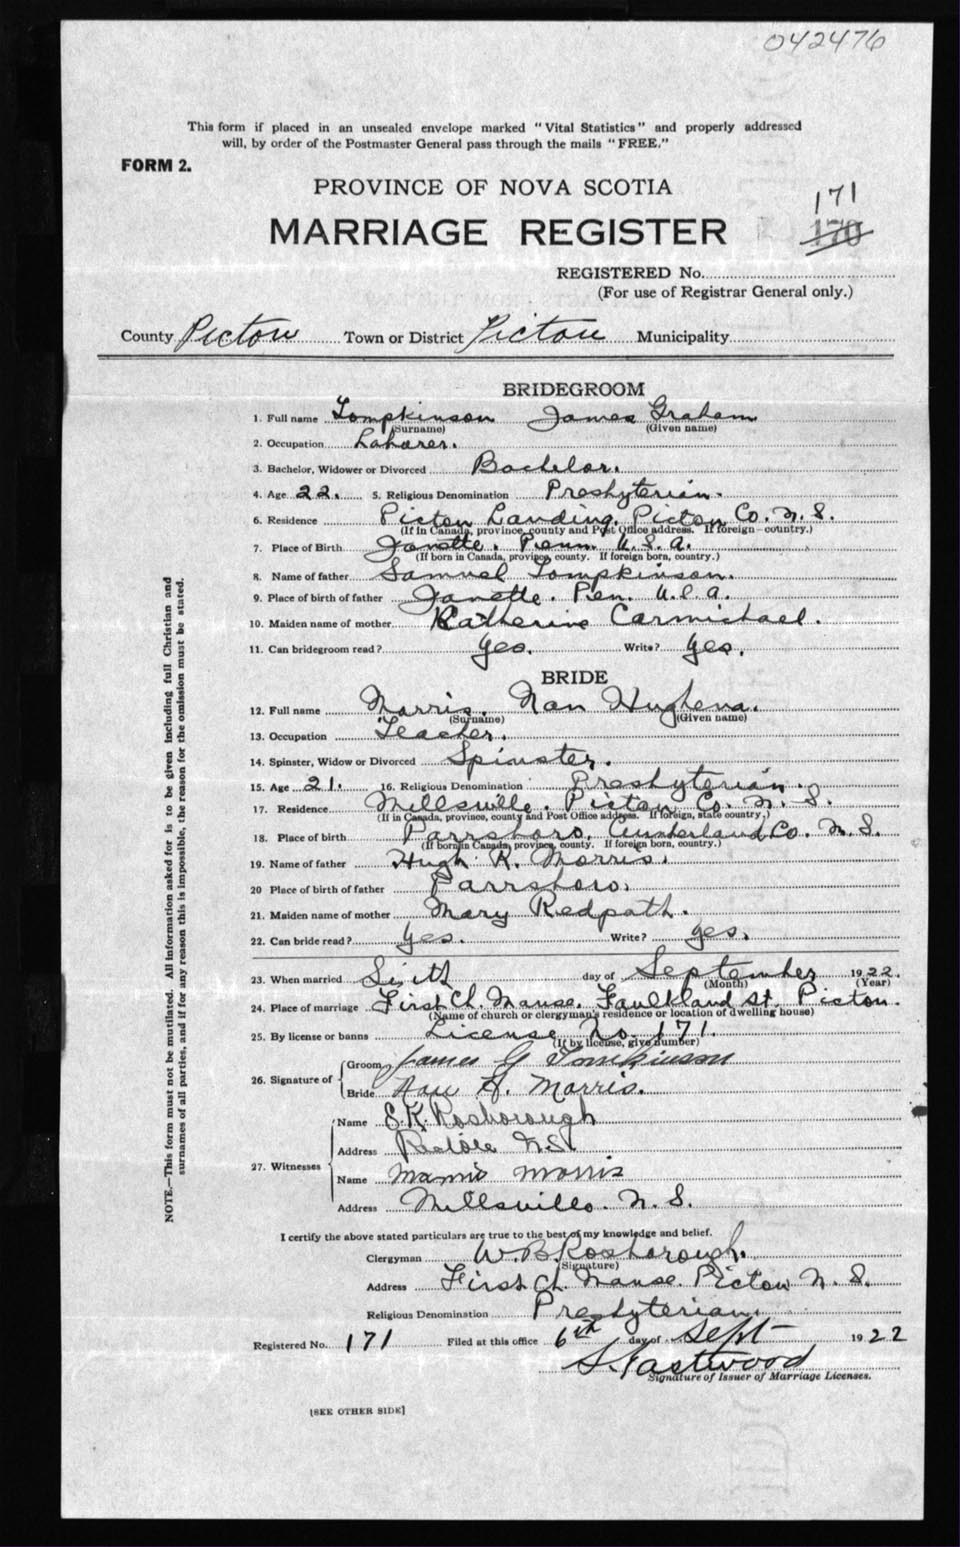 042476
This form if placed in an unsealed envelope marked "Vital Statistics" and properly addressed
will, by order of the Postmaster General pass through the mails "FREE."
FORM 2.
PROVINCE OF NOVA SCOTIA
171
MARRIAGE REGISTER 170
REGISTERED No.
(For use of Registrar General only.)
County Pictou Town or District Pictou Municipality
BRIDEGROOM
1. Full name Tompkinson James Graham
(Surname) (Given name)
2. Occupation Laborer.
3. Bachelor, Widower or Divorced Bachelor.
4. Age 22. 5. Religious Denomination Presbyterian.
6. Residence Pictou Landing, Pictou Co. N. S.
(If in Canada, province, county and Post Office address. If foreign country.)
7. Place of Birth Janette. Penn. U.S.A.
(If born in Canada, province, county. If foreign born, country.)
8. Name of father Samuel Tompkinson.
9. Place of birth of father Janette. Pen. U.S.A.
10. Maiden name of mother Katherine Carmichael.
11. Can bridegroom read? Yes. Write? Yes.
BRIDE
12. Full name Morris. Nan Hughena.
(Surname) (Given name)
13. Occupation Teacher.
14. Spinster, Widow or Divorced Spinster.
15. Age 21. 16. Religious Denomination Presbyterian.
17. Residence Millsville. Pictou Co. N. S.
(If in Canada, province, county and Post Office address. If foreign, state country.)
18. Place of birth Parrsboro, Cumberland Co. N. S.
(If born in Canada, province, county. If foreign born, country.)
19. Name of father Hugh K. Morris.
20 Place of birth of father Parrsboro.
21. Maiden name of mother Mary Redpath.
22. Can bride read? Yes. Write? Yes.
23. When married Sixth day of September 1922.
(Month) (Year)
24. Place of marriage First Ch. Manse. Faulkland St. Pictou.
(Name of church or clergyman's residence or location of dwelling house)
25. By license or banns License No. 171.
(If by license, give number)
26. Signature of Groom James G Tomkinson
Bride Nan H. Morris.
27. Witnesses
Name E.K. Rosborough
Address Pictou N.S.
Name Mamie Morris
Address Millsville. N. S.
I certify the above stated particulars are true to the best of my knowledge and belief.
Clergyman W. B. Rosborough.
(Signature)
Address First Ch. Manse. Pictou N. S.
Religious Denomination Presbyterian.
Registered No. 171 Filed at this office 6th day of Sept 1922
S. Eastwood
Signature of Issuer of Marriage Licenses.
[SEE OTHER SIDE]
NOTE.—This form must not be mutilated. All information asked for is to be given including full Christian and
surnames of all parties, and if for any reason this is impossible, the reason for the omission must be stated.